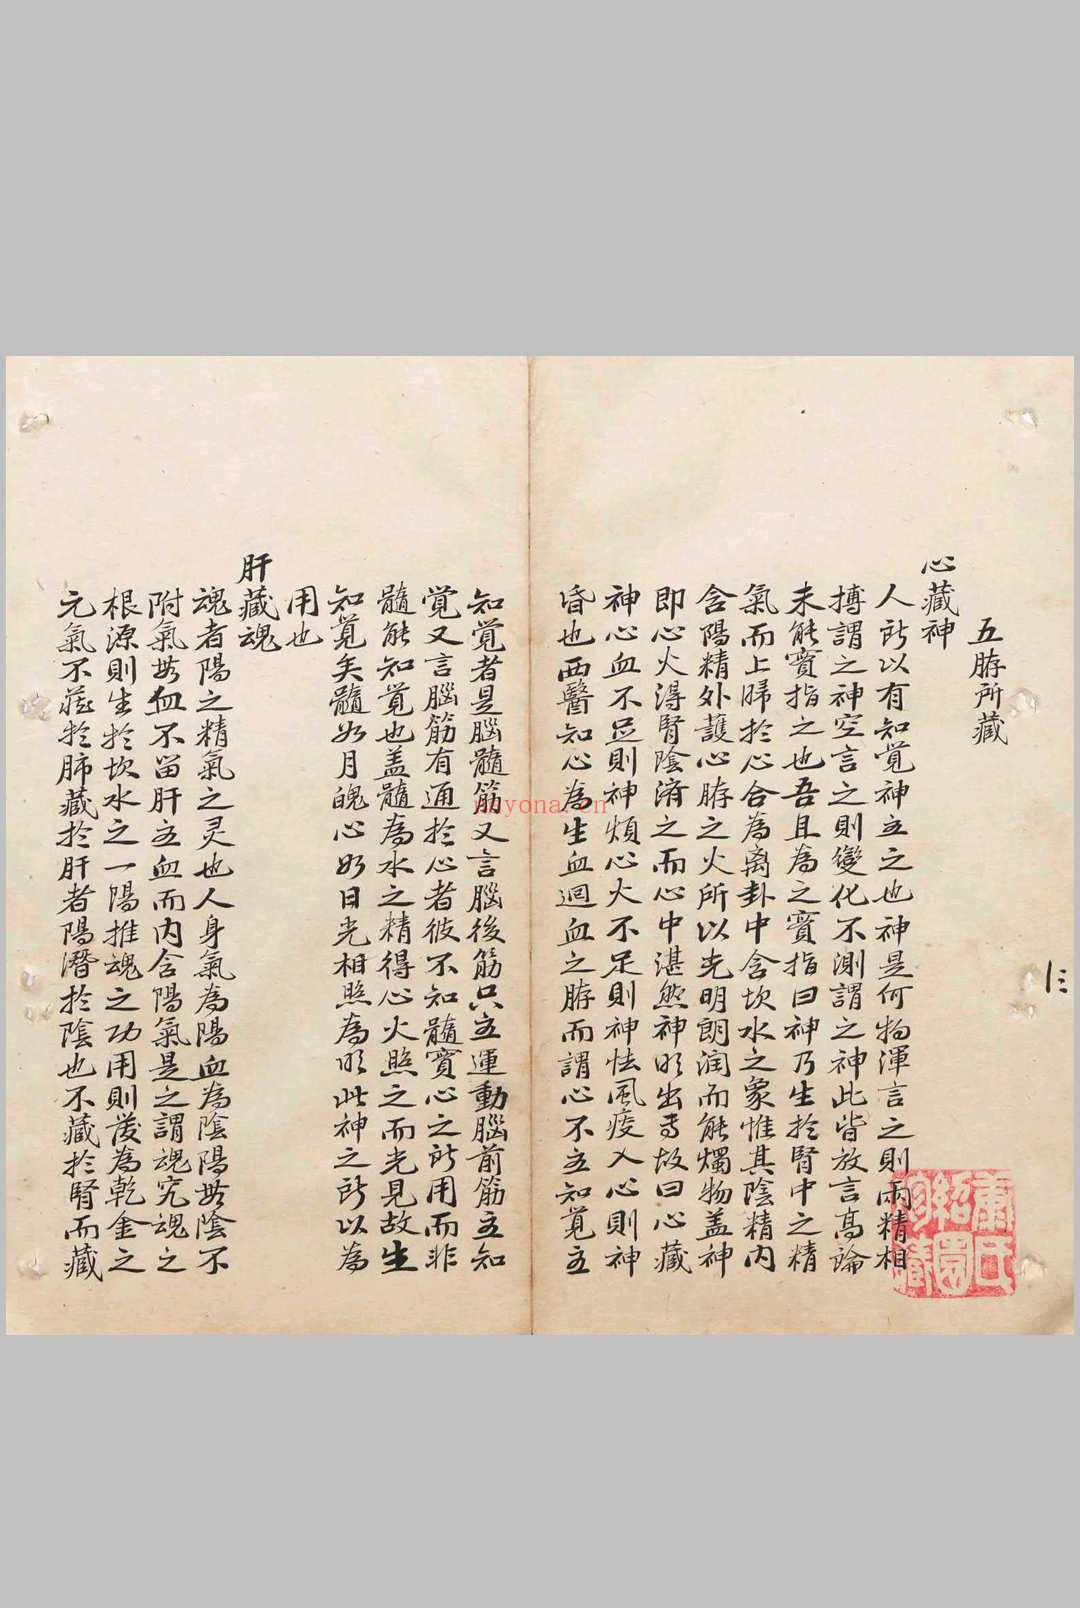 五脏所藏
心藏神
人所以有知覚神主之也神是何物渾言之則兩精相
搏謂之神空言之則變化不測謂之神此皆放言髙論
未能實指之也吾且為之實指曰神乃生於腎中之精
氣而上歸於心合為离卦中含坎水之象惟其陰精内
含陽精外護心脏之火所以光明朗润而能燭物盖神
即心火淂腎陰濟之而心中湛然神明出焉故曰心藏
神心血不足則神煩心火不足則神怯風疫入心則神
昏也西醫知心為生血迴血之脏而謂心不主知覚主
知覚者是腦髓筋又言腦後筋只主運動腦前筋主知
覚又言腦筋有通於心者彼不知髓實心之所用而非
髓能知覚也盖髓為水之精得心火照之而光見故生
知覚矣髓如月魄心如日光相照為明此神之所以為
用也
肝藏魂
魂者陽之精氣之灵也人身氣為陽血為陰陽無陰不
附氣無血不留肝主血而内含陽氣是之謂魂究魂之
根源則生於坎水之一陽推魂之功用則發為乾金之
元氣不藏於肺藏於肝者陽潛於陰也不藏於腎而藏
蕭氏紹園
myona.cn